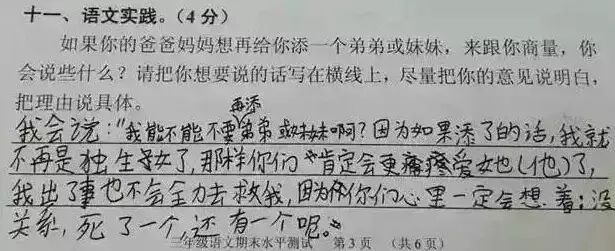 十一、语文实践。（4分）
如果你的爸爸妈妈想再给你添一个弟弟或妹妹，来跟你商量，你
会说些什么？请把你想要说的话写在横线上，尽量把你的意见说明白，
把理由说具体。
再添
我会说："我能不能不要弟弟或妹妹啊？因为如果添了的话，我就
不再是独生子女了，那样你们肯定会更疼爱她也（他）了，
我出了事也不会全力去求救我，因为你们心里一定会想着：没
关系，死了一个，还有一个呢。"
二年级语文期末水平测试 第3页 （共6页）